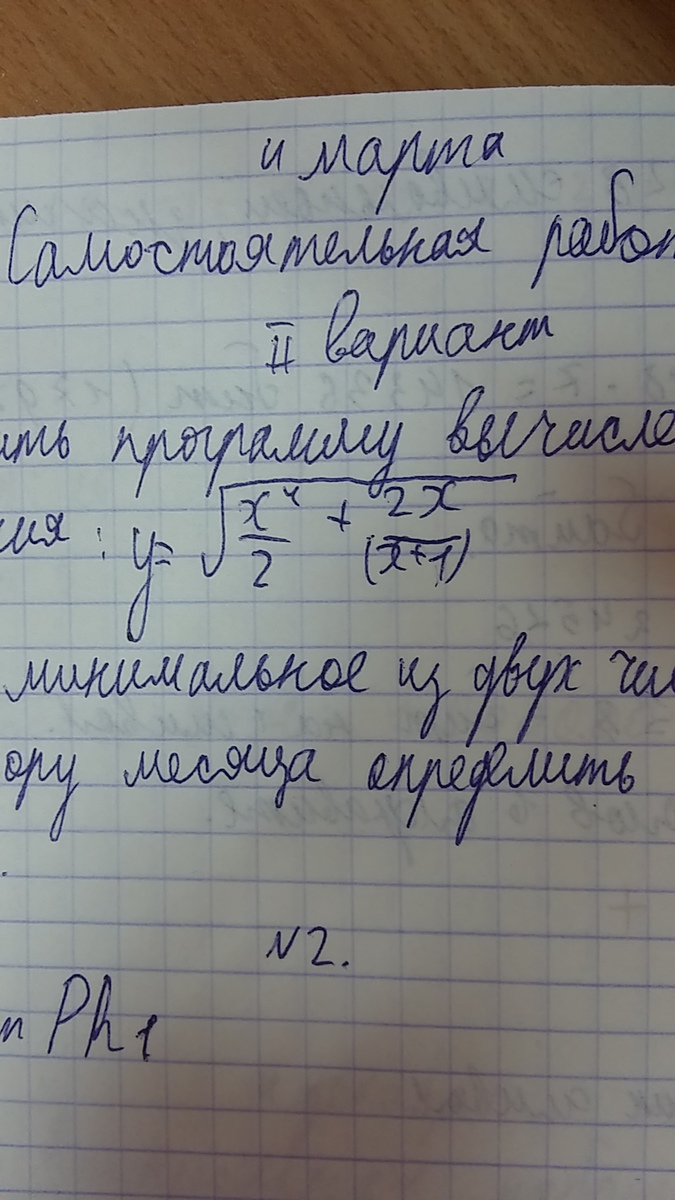 11 марта
Самостоятельная работ
II вариант
ить программу вычисле
ния: y = √(x⁴/2 + 2x/(x+1))
минимальное из двух чи
ору месяца определить
.
N2.
m Ph1